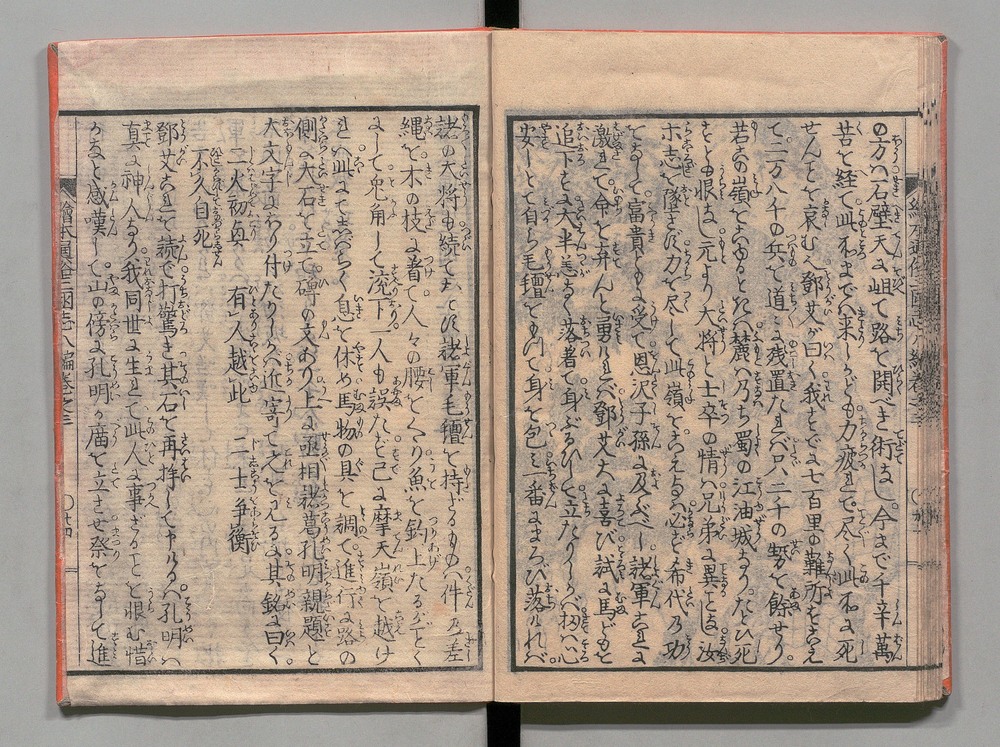 の方ハ石壁天に岨て路を開べき術なし。今まで千辛萬
苦を経て此所まで来しかども力疲れて尽く此所に死
せんとて哀むバ鄧艾が曰く我すでに七百里の難所をこえ
て。二万八千の兵を道に残置たれバ只二千の勢を餘せり。
若此嶺をこゆるときハ麓ハ乃ち蜀の江油城なりたとひ死
すとも恨なし元より大将と士卒の情ハ兄弟に異ことなし汝
ホ志を墜さず力を尽して此嶺をこえよ必ず希代乃功
て富貴ともに受て恩沢子孫に及ぶべし諸軍これに
激されて命を弃んと勇けれバ鄧艾大に喜び試に馬どもを
追下すに大半恙なく落着て身ぶるひして立たりしかバ扨ハ心
安しとて自ら毛氊をもつて身を包ミ一番にまろび落けれバ
諸の大将も続ておとす諸軍毛氊を持ざるものハ件乃差
縄を木の枝に着て。人々の腰をくくり魚を釣上たるごとく
にして兎角して滾下一人も誤たず已に摩天嶺を越け
れバ此にてしバらく息を休め馬物の具を調て進行に路の
側に大石を立て碑の文あり上に丞相諸葛孔明親題と
大文字にほり付たりしかバ近く寄て之を見るに其銘に曰く。
二火初興 有人越此 二士争衡
不久自死
鄧艾これを読で打驚き其石を再拝して申けるハ孔明ハ
真に神人なり我同世に生れて此人に事ざることを恨む惜
かなと感嘆し山の傍に孔明が廟を立させ祭をなして進
繪本通俗三國志八編巻之三
十四